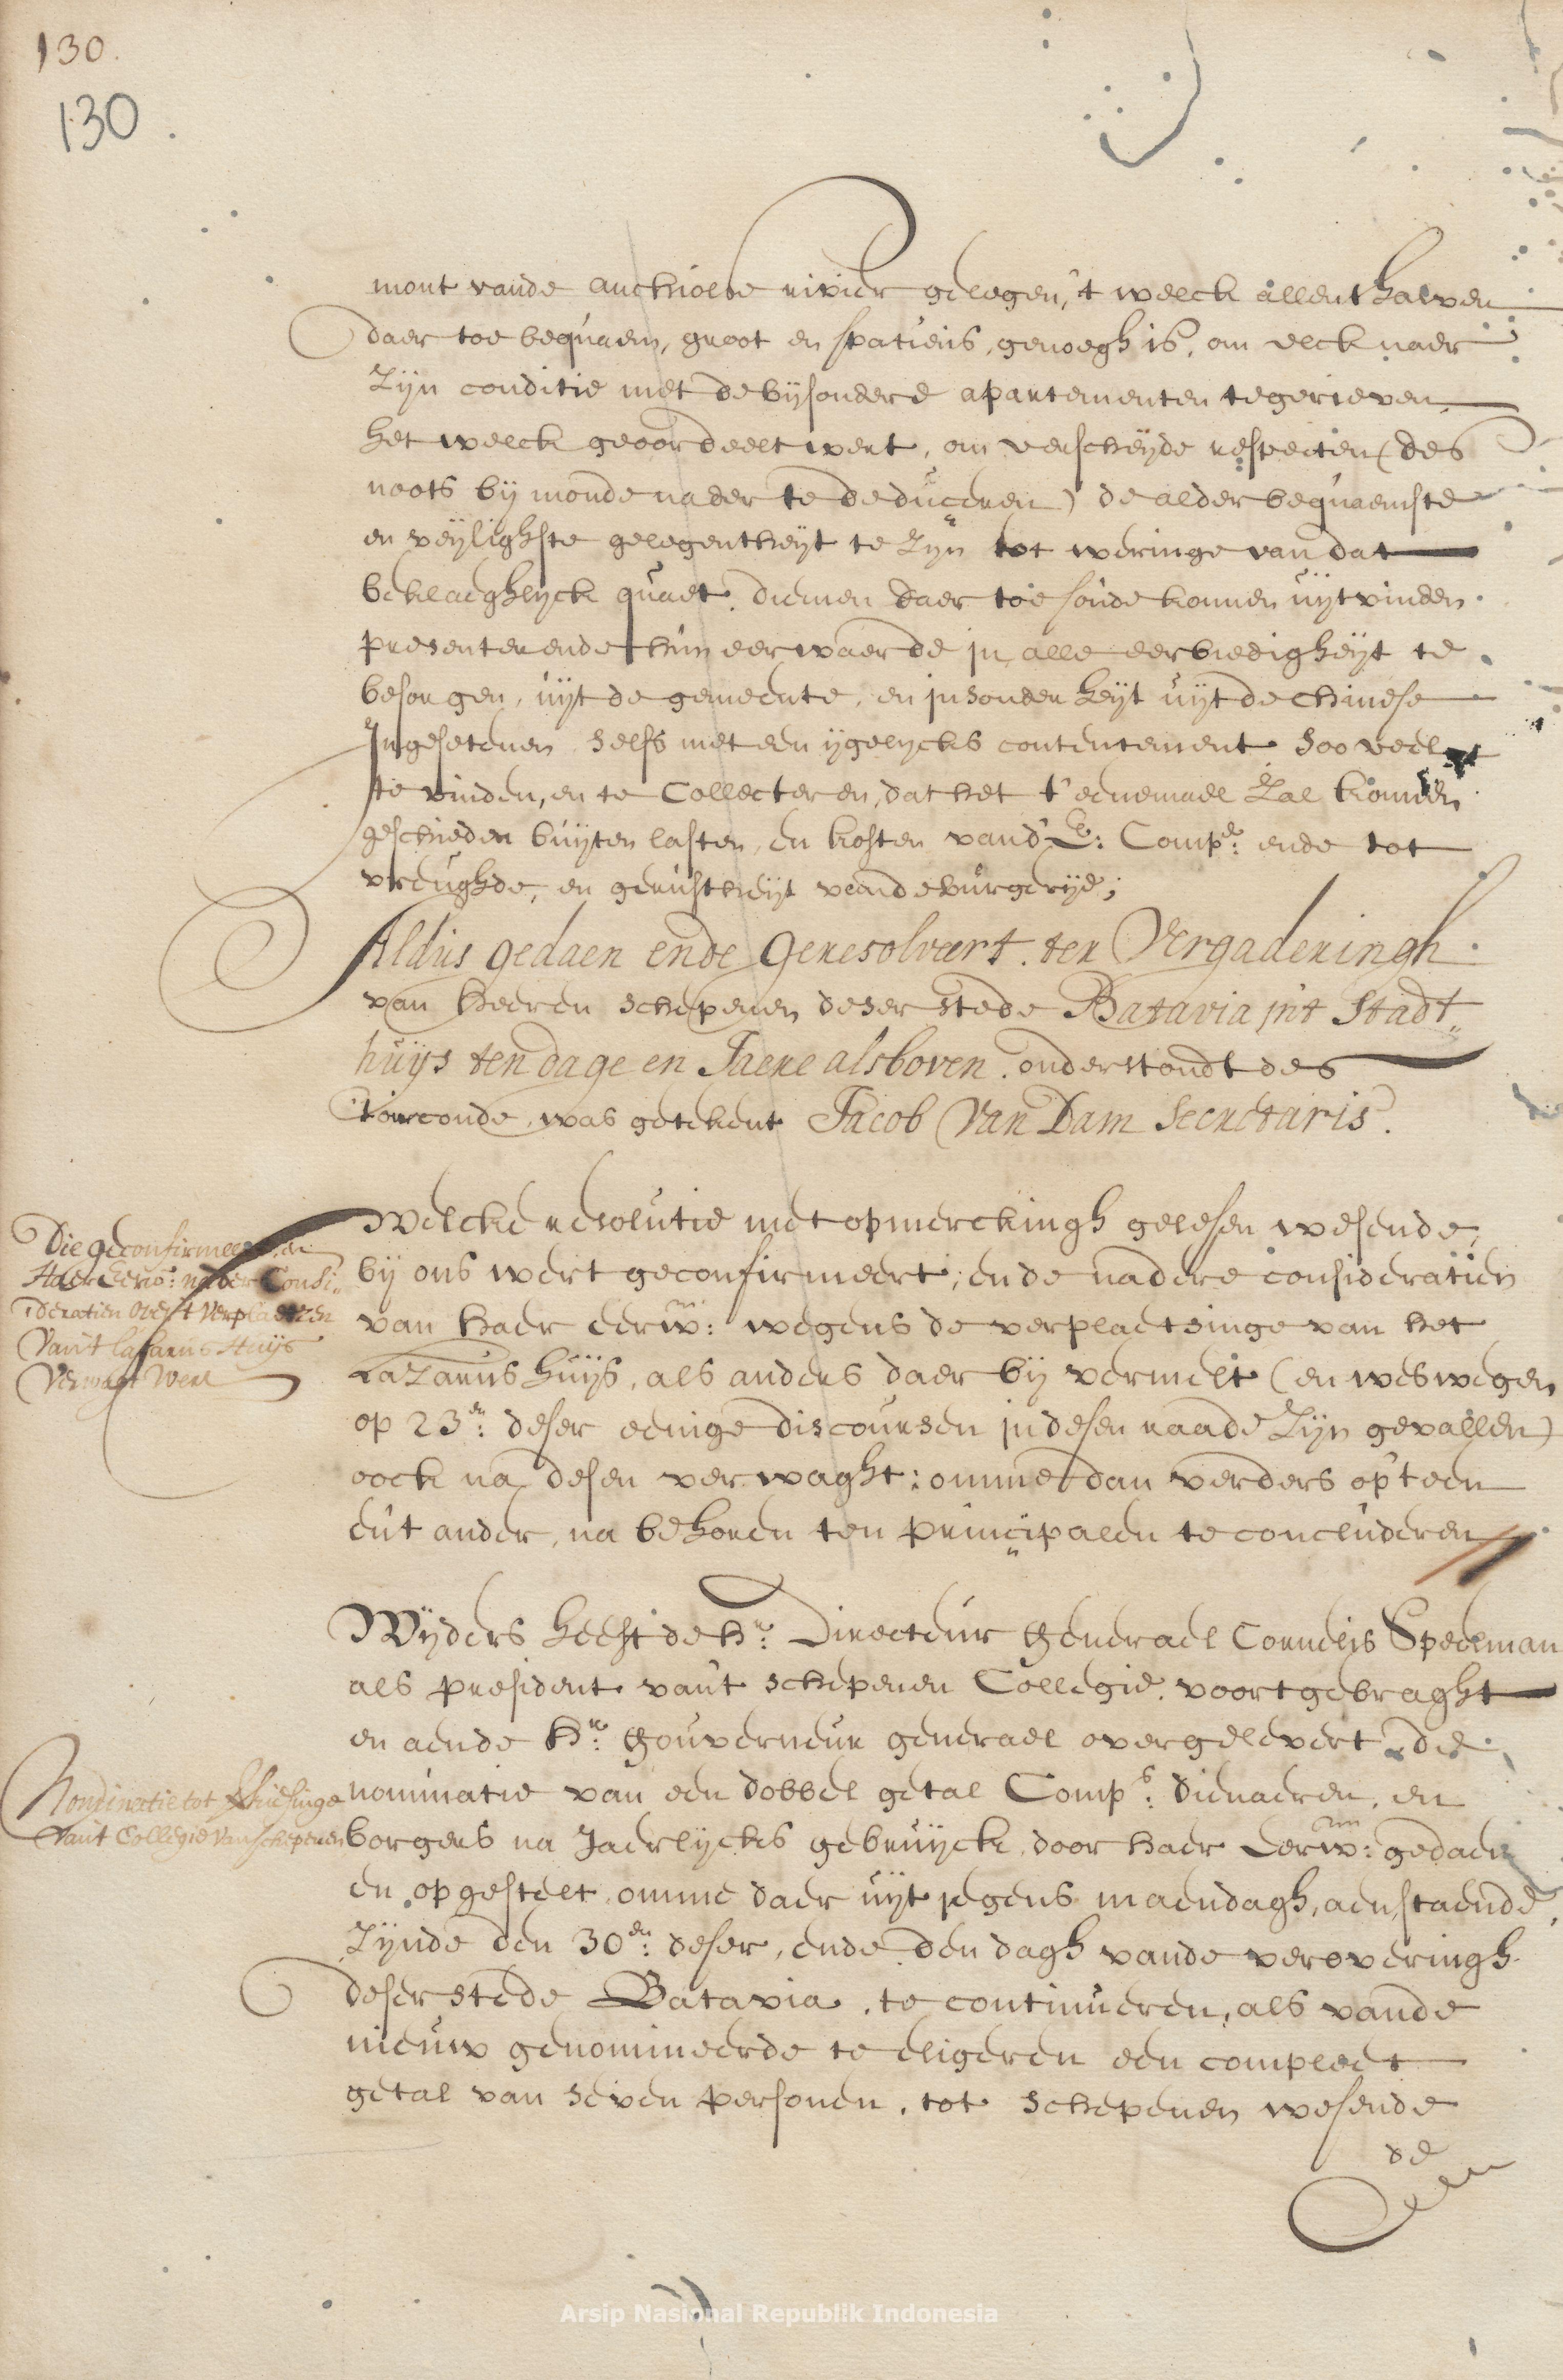 130.
130.
mont vande anckiolse rivier gelegen, 't welck allenthalven
daer toe bequaem, groot en spatieus, genoegh is, om elck naer
zijn conditie met de bijsondere apartementen te gerieven
het welck geoordeelt wert, om verscheijde respecten (des
noots bij monde nader te deduceren) de alderbequaemste
en veijlighste gelegentheijt te zijn tot weringe van dat
beklaeghlyck quaet, diemen daer toe soude konnen uijtvinden.
presenterende hun eerwaerde in alle eerbiedigheijt te
besorgen, uijt de gemeente, en insonderheijt uijt de Chinese
Ingesetenen selfs met een ijgelycks contentement soo veel
te vinden, en te Collecteren, dat het t'eenemael zal konnen
geschieden buijten lasten, en kosten vand' E: Comp.e: ende tot
vreughde, en gerustheijt vande burgerije;
Aldus gedaen ende Geresolveert. ter Vergaderingh
van Heeren schepenen deser stede Batavia int Stadt„
huijs ten dage en Jaere alsboven. onderstondt des
t'oirconde, was getekent Jacob Van Dam Secretaris.
Die geconfirmeert, en
Haer Eerw: nader Consi„
deratien over 't verplaetzen
van't Lasarus Huijs
Verwagt Wert
Welcke resolutie met opmerckingh gelesen wesende,
bij ons wert geconfirmeert; ende nadere consideratien
van haer eerw: wegens de verplaetsinge van het
Lazarus huijs, als anders daer bij vermelt (en weswegen
op 23.en: deser eenige discoursen in desen raade zijn gevallen)
oock na desen verwaght: omme dan verders op 't een
en't ander, na behoren ten principalen te concluderen
Wijders heeft de H.r: Directeur Generael Cornelis Speelman
als president van't schepenen Collegie voortgebraght
en aende H.r: Gouverneur generael overgelevert de
Nominatie tot verkiesinge
van't Collegie van schepenen
nominatie van een dobbel getal Comp.s: dienaeren, en
borgers na Jaerlijcks gebruijck, door haer Eerw: gedaen
en opgestelt, omme daer uijt jegens maendagh, aenstaende,
zijnde den 30.en: deser, ende den dagh vande veroveringh
deser stede Batavia, te continueren, als vande
nieuw genomineerde te eligeren een compleet
getal van seven persoonen, tot schepenen wesende
de
Arsip Nasional Republik Indonesia